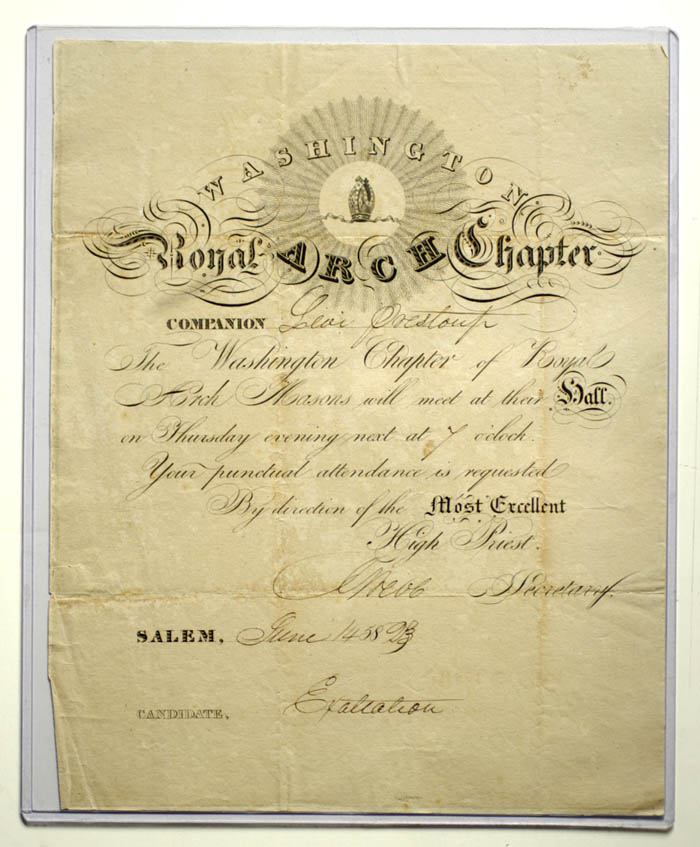 WASHINGTON
Royal ARCH Chapter
COMPANION Levi
The Washington Chapter of Royal
Arch Masons will meet at their Hall.
on Thursday evening next at 7 o'clock.
Your punctual attendance is requested
By direction of the Most Excellent
High Priest.
Secretary.
SALEM, June 14
CANDIDATE, Exaltation